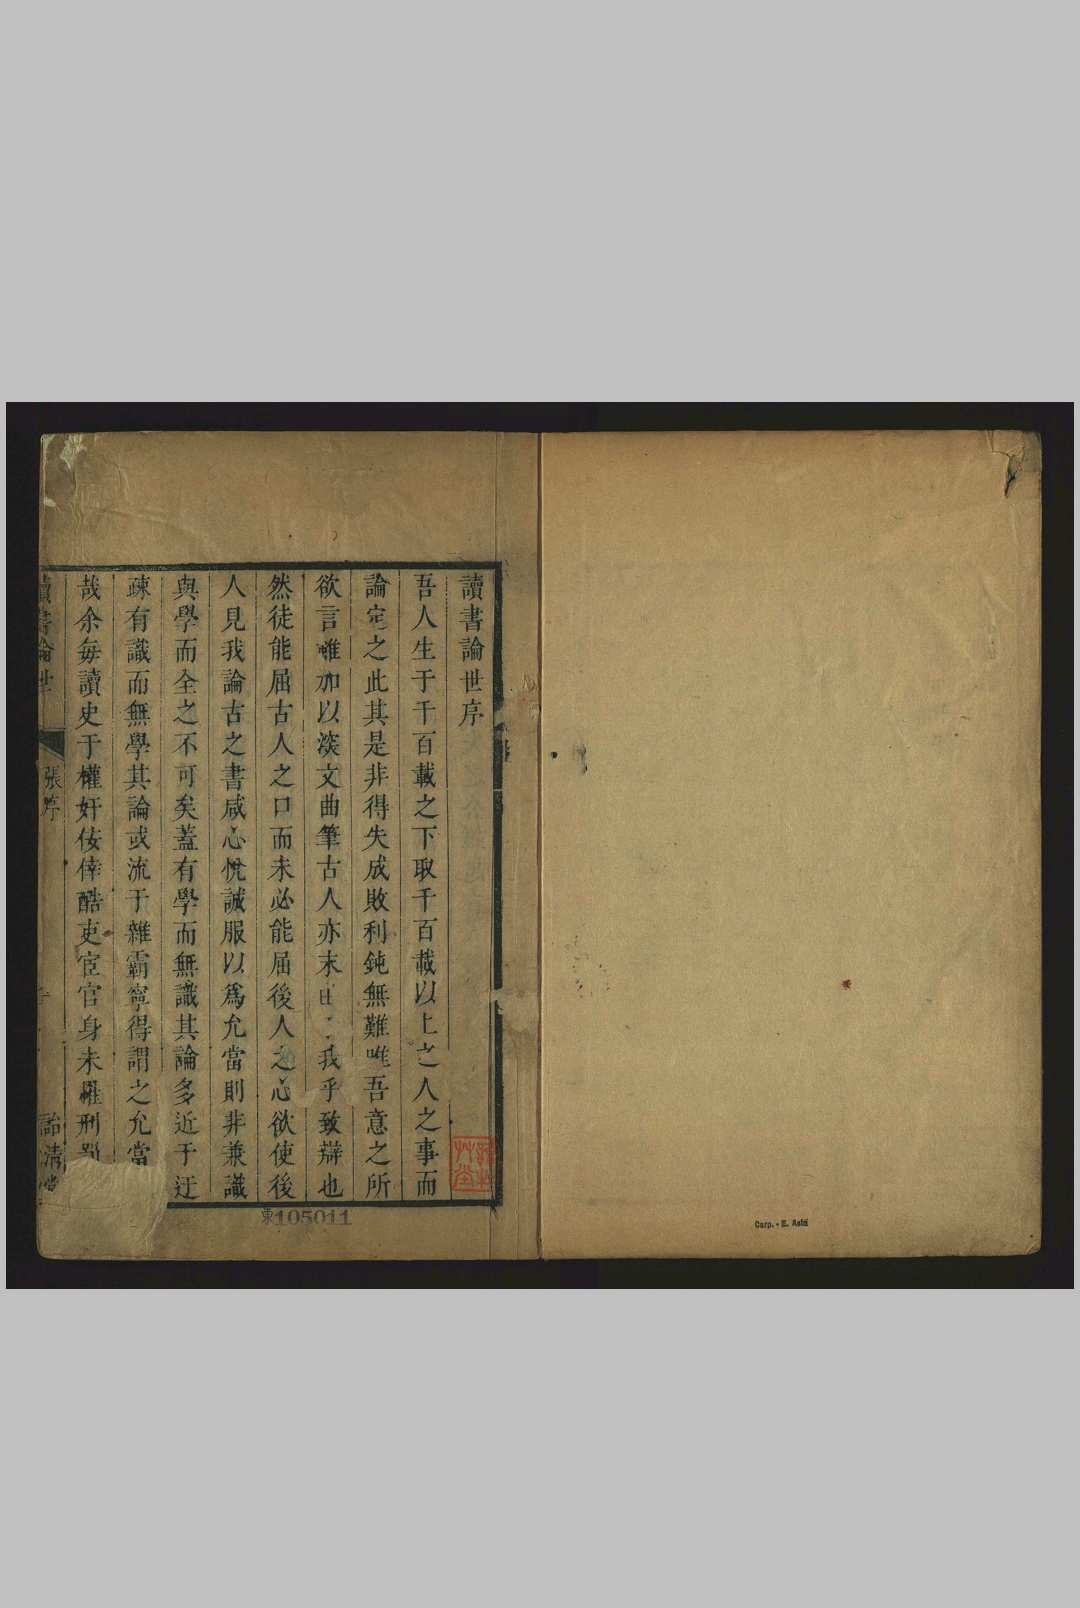 讀書論世序
吾人生于千百載之下取千百載以上之人之事而
論定之此其是非得失成敗利鈍無難唯吾意之所
欲言雖加以深文曲筆古人亦末由 我乎致辯也
然徒能屈古人之口而未必能屈後人之心欲使後
人見我論古之書咸心悅誠服以爲允當則非兼識
與學而全之不可矣蓋有學而無識其論多近于迂
疎有識而無學其論或流于雜霸寧得謂之允當
哉余每讀史于權奸佞倖酷吏宦官身未罹刑
讀書論世
張序
詒清堂
東105011
Carp. - E. Asia